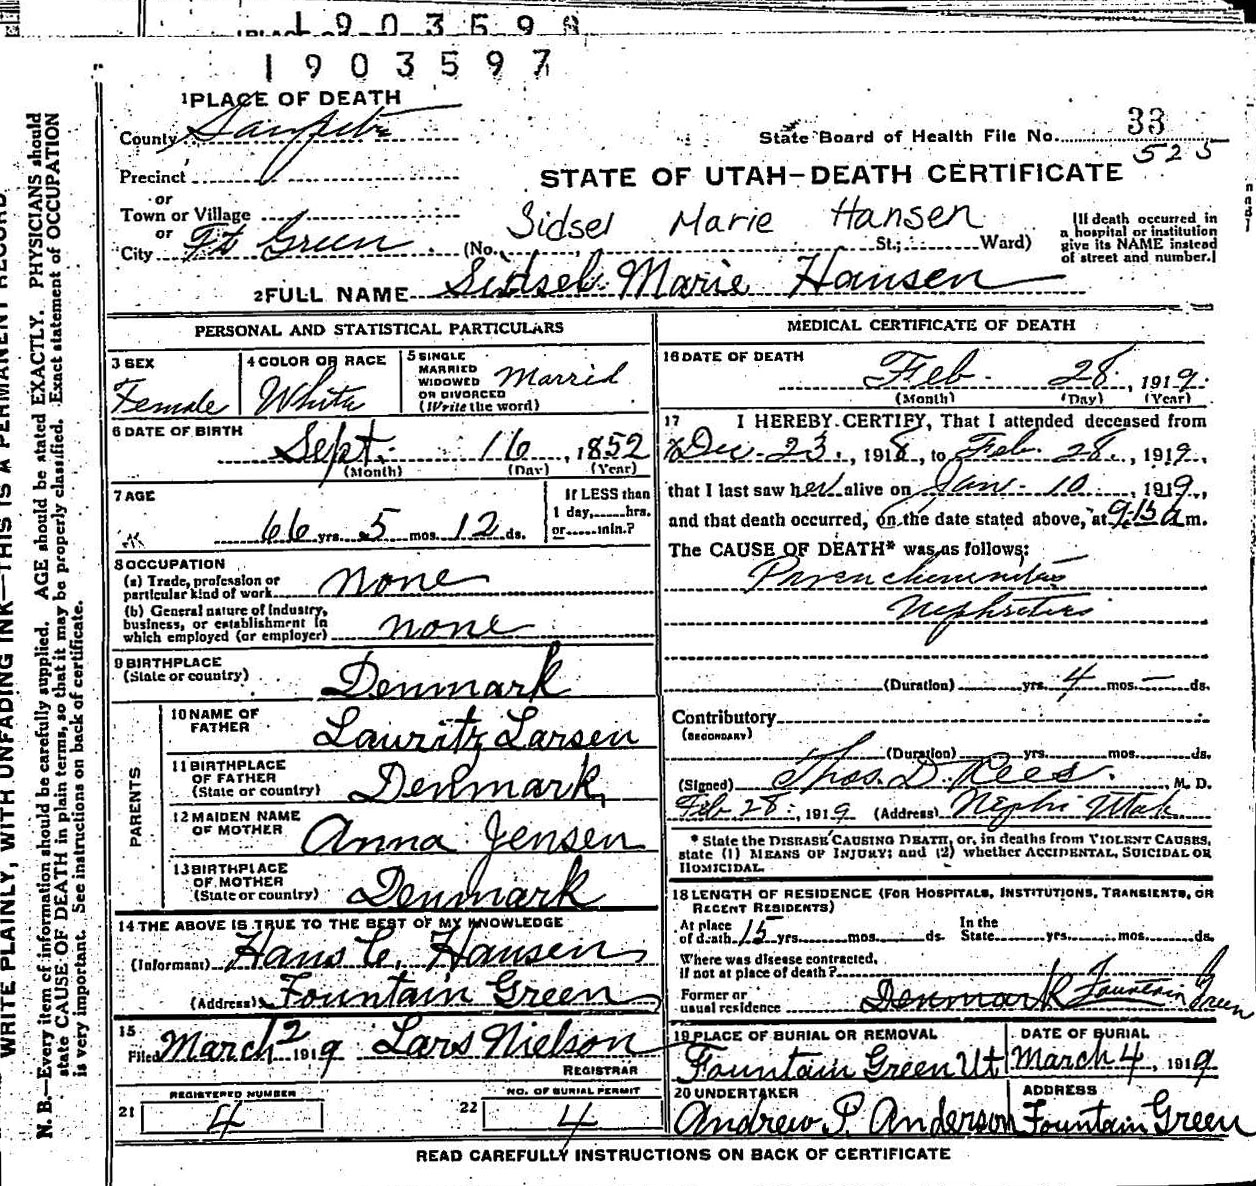 1903598
1903597
1 PLACE OF DEATH
County Sanpete
State Board of Health File No. 33
525
Precinct
STATE OF UTAH—DEATH CERTIFICATE
or
Town or Village
or
City Ft Green
Sidsel Marie Hansen
(No. St.; Ward)
[If death occurred in
a hospital or institution
give its NAME instead
of street and number.]
2 FULL NAME Sidsel Marie Hansen
PERSONAL AND STATISTICAL PARTICULARS
3 SEX
Female
4 COLOR OR RACE
White
5 SINGLE
MARRIED
WIDOWED
OR DIVORCED
(Write the word)
Marrid
6 DATE OF BIRTH
Sept. 16, 1852
(Month) (Day) (Year)
7 AGE
66 yrs. 5 mos. 12 ds.
If LESS than
1 day, hrs.
or min.?
8 OCCUPATION
(a) Trade, profession or
particular kind of work none
(b) General nature of Industry,
business, or establishment in
which employed (or employer) none
9 BIRTHPLACE
(State or country)
Denmark
PARENTS
10 NAME OF
FATHER
Lauritz Larsen
11 BIRTHPLACE
OF FATHER
(State or country)
Denmark
12 MAIDEN NAME
OF MOTHER
Anna Jensen
13 BIRTHPLACE
OF MOTHER
(State or country)
Denmark
14 THE ABOVE IS TRUE TO THE BEST OF MY KNOWLEDGE
(Informant) Hans C. Hansen
(Address) Fountain Green
15
Filed March 2 1919 Lars Nielson
REGISTRAR
REGISTERED NUMBER
21 4
NO. OF BURIAL PERMIT
22 4
MEDICAL CERTIFICATE OF DEATH
16 DATE OF DEATH
Feb. 28, 1919
(Month) (Day) (Year)
17 I HEREBY CERTIFY, That I attended deceased from
Dec. 23, 1918, to Feb. 28, 1919,
that I last saw her alive on Jan. 10, 1919,
and that death occurred, on the date stated above, at 9:15 a m.
The CAUSE OF DEATH* was as follows:
Nephritis
(Duration) yrs. 4 mos. — ds.
Contributory
(SECONDARY)
(Duration) yrs. mos. ds.
(Signed) Thos. D. Rees. M. D.
Feb 28, 1919 (Address) Nephi Utah
* State the DISEASE CAUSING DEATH, or, in deaths from VIOLENT CAUSES,
state (1) MEANS OF INJURY; and (2) whether ACCIDENTAL, SUICIDAL OR
HOMICIDAL.
18 LENGTH OF RESIDENCE (FOR HOSPITALS, INSTITUTIONS, TRANSIENTS, OR
RECENT RESIDENTS)
At place
of death 15 yrs. mos. ds.
In the
State yrs. mos. ds.
Where was disease contracted,
if not at place of death?
Former or
usual residence Denmark Fountain Green
19 PLACE OF BURIAL OR REMOVAL
Fountain Green Ut
DATE OF BURIAL
March 4, 1919
20 UNDERTAKER
Andrew P. Anderson
ADDRESS
Fountain Green
READ CAREFULLY INSTRUCTIONS ON BACK OF CERTIFICATE
WRITE PLAINLY, WITH UNFADING INK—THIS IS A PERMANENT RECORD
N. B.—Every item of information should be carefully supplied. AGE should be stated EXACTLY. PHYSICIANS should
state CAUSE OF DEATH in plain terms, so that it may be properly classified. Exact statement of OCCUPATION
is very important. See instructions on back of certificate.